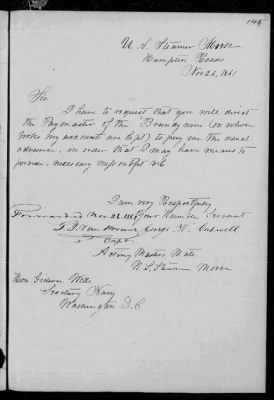 U. S. Steamer Morse
Hampton Roads
Nov 26, 1861
Sir
I have to request that you will direct
the Paymaster of the Brandywine (on whose
books my accounts are kept) to pay me the usual
advance, in order that I may have means to
provide necessary mess outfit &c
I am very Respectfully
Forwarded Nov. 26 1861 Your Humble Servant
George W.
Capt.
Acting Masters Mate
U. S. Steam Morse
Hon. Gideon Welles
Secretary Navy
Washington D.C